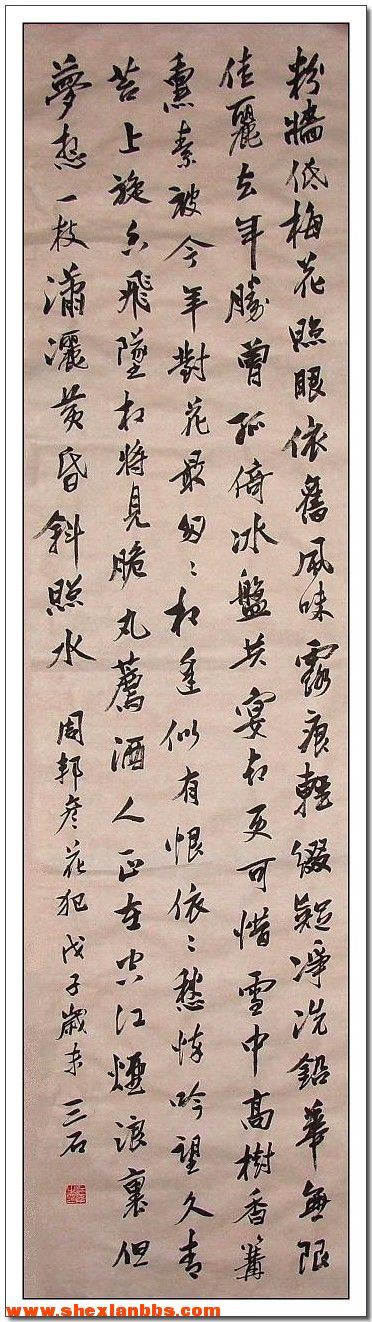 粉墻低梅花照眼依舊風味露痕輕綴疑凈洗鉛華無限
佳麗去年勝曾孤倚冰盤共宴喜更可惜雪中高樹香篝
熏素被今年對花最匆匆相逢似有恨依依愁悴吟望久青
苔上旋看飛墜相將見脆丸薦酒人正在空江煙浪裏但
夢想一枝瀟灑黃昏斜照水 周邦彥花犯 戊子歲末 三石
www.shexianbbs.com